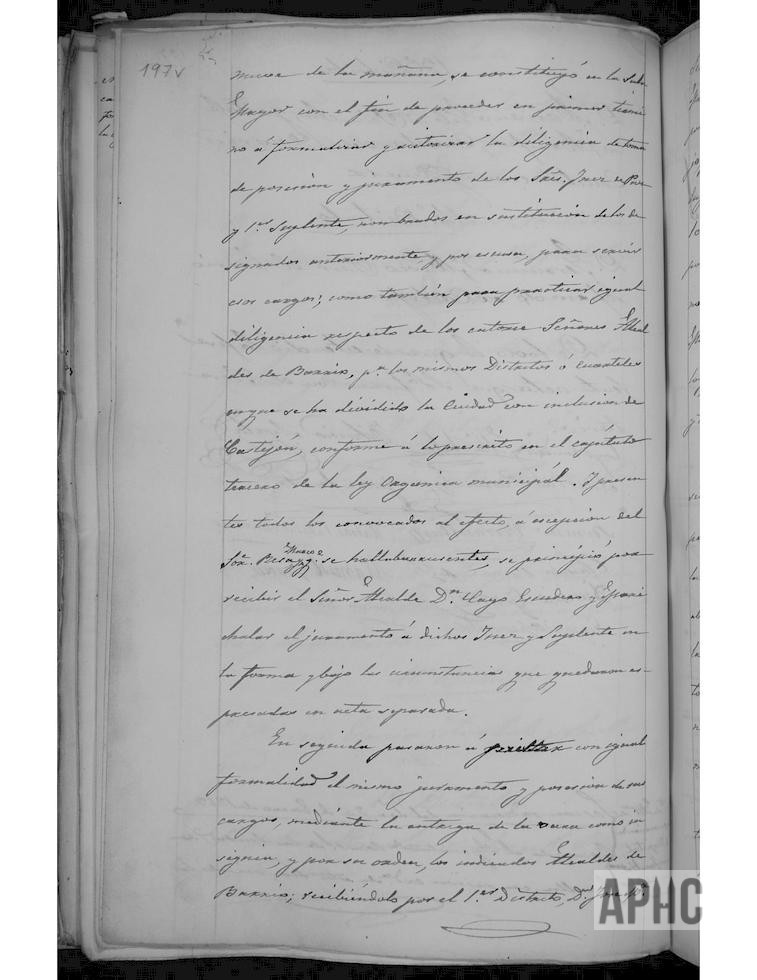 197v
nueve de la mañana, se constituyó en la Sala
Mayor con el fin de proceder en primer térmi
no á formalizar y autorizar la diligencia de toma
de posesión y juramento de los Sres. Juez de Paz
y 1er Suplente, nombrados en sustitución de los de
signados anteriormente y por escusa, para servir
esos cargos; como también para practicar igual
diligencia respecto de los catorce Señores Alcal
des de Barrio, pa los mismos Distritos ó cuarteles
en que se ha dividido la Ciudad con inclusion de
Castejón, conforme á lo prescrito en el capítulo
tercero de la ley Orgánica municipál. Y presen
tes todos los convocados al efecto, á escepcion del
Sor. Resa y q. se hallaban ausentes, se principió por
recibir el Señor Alcalde Dn. Cayo Escudero y
chalar el juramento á dichos Juez y Suplente en
la forma y bajo las circunstancias que quedaron es-
presadas en acta separada.
En seguida pasaron á prestar con igual
formalidad el mismo juramento y posesion de sus
cargos, mediante la entrega de la vara como in
signia, y por su orden, los indicados Alcaldes de
Barrio; recibiéndolo por el 1er Distrito, Dn. José
APHC